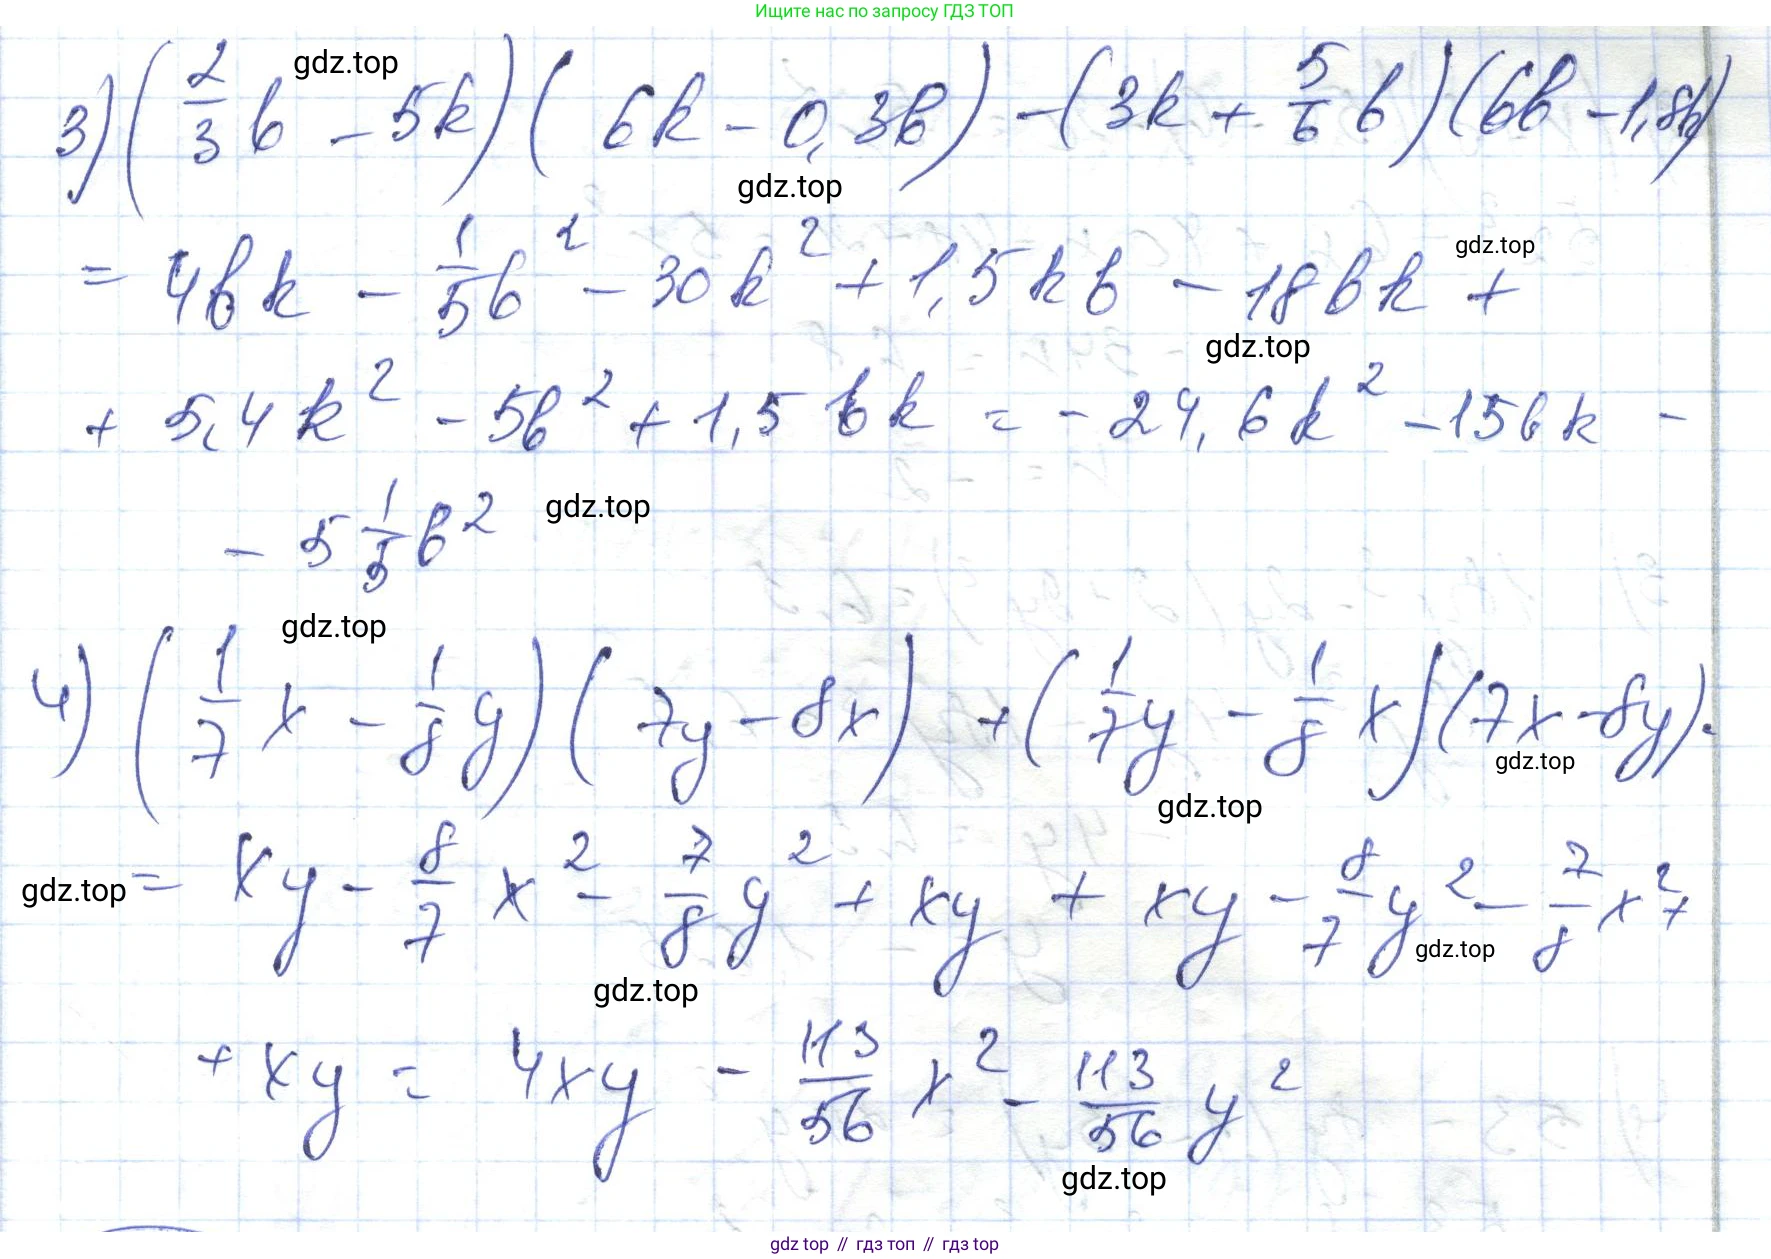 Ищите нас по запросу ГДЗ ТОП
3) (2/3 b - 5k)(6k - 0,3b) - (3k + 5/6 b)(6b - 1,8k)
gdz.top
gdz.top
= 4bk - 1/5 b² - 30k² + 1,5kb - 18bk +
gdz.top
gdz.top
+ 5,4k² - 5b² + 1,5bk = -24,6k² - 15bk -
- 5 1/5 b²
gdz.top
gdz.top
4) (1/7 x - 1/8 y)(7y - 8x) + (1/7 y - 1/8 x)(7x - 8y) =
gdz.top
gdz.top
gdz.top
= xy - 8/7 x² - 7/8 y² + xy + xy - 8/7 y² - 7/8 x² +
gdz.top
gdz.top
+ xy = 4xy - 113/56 x² - 113/56 y²
gdz.top
gdz top // гдз топ // gdz top